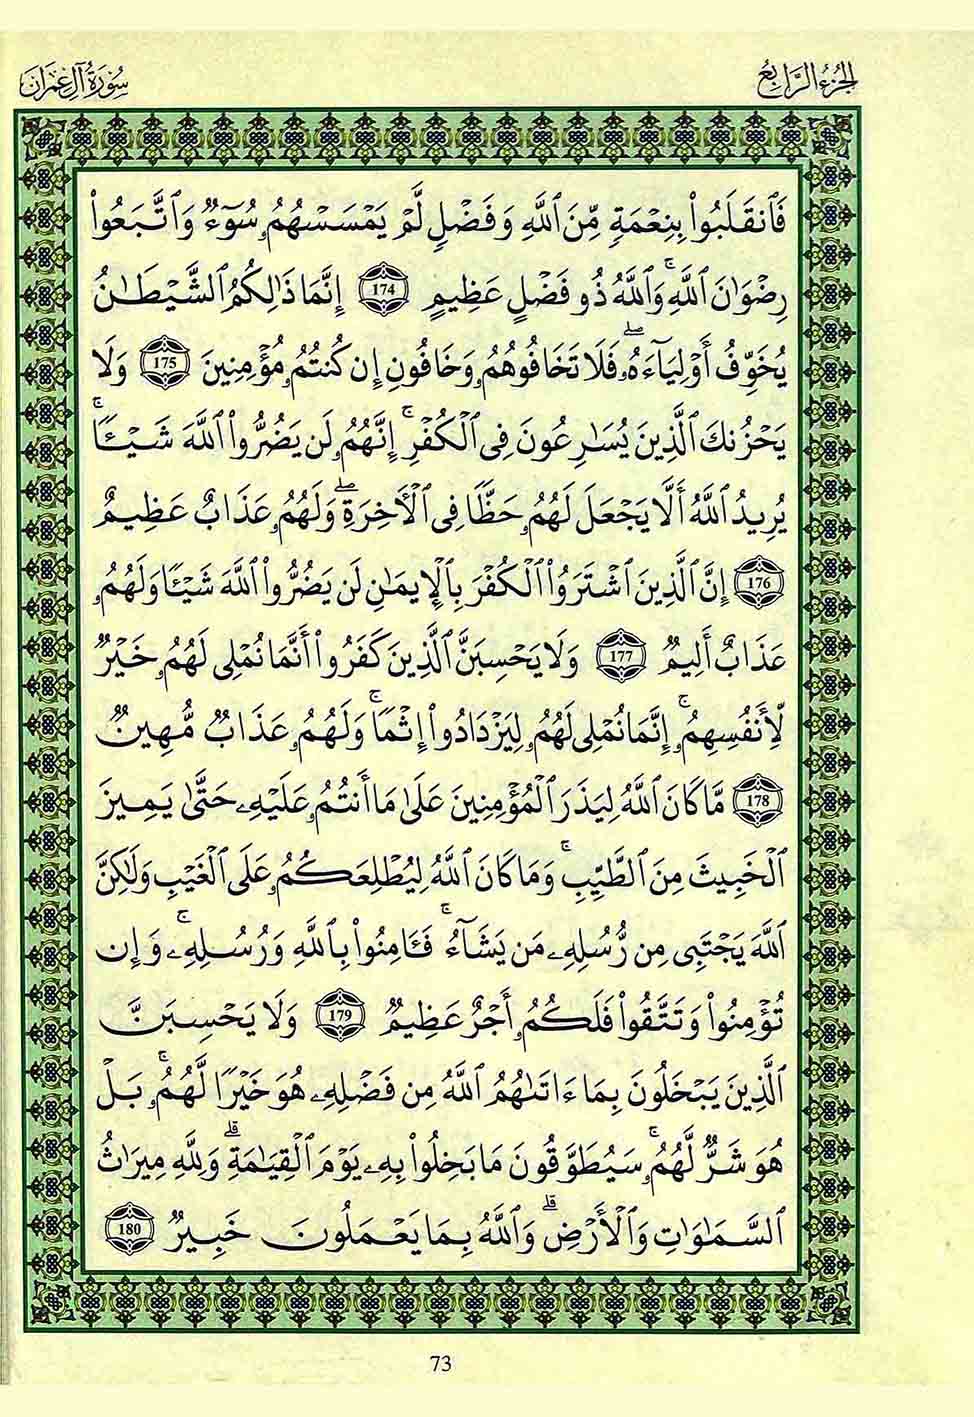 الجُزْءُ الرَّابِعُ
سُورَةُ آلِ عِمْرَانَ
فَٱنقَلَبُوا۟ بِنِعْمَةٍ مِّنَ ٱللَّهِ وَفَضْلٍ لَّمْ يَمْسَسْهُمُۥ سُوٓءٌ وَٱتَّبَعُوا۟
رِضْوَٰنَ ٱللَّهِ ۚ وَٱللَّهُ ذُو فَضْلٍ عَظِيمٍ 174 إِنَّمَا ذَٰلِكُمُ ٱلشَّيْطَـٰنُ
يُخَوِّفُ أَوْلِيَآءَهُۥ ۖ فَلَا تَخَافُوهُمُۥ وَخَافُونِ إِن كُنتُمُۥ مُؤْمِنِينَ 175 وَلَا
يَحْزُنكَ ٱلَّذِينَ يُسَـٰرِعُونَ فِى ٱلْكُفْرِ ۚ إِنَّهُمُۥ لَن يَضُرُّوا۟ ٱللَّهَ شَيْـًٔا ۚ
يُرِيدُ ٱللَّهُ أَلَّا يَجْعَلَ لَهُمُۥ حَظًّا فِى ٱلْأَخِرَةِ ۖ وَلَهُمُۥ عَذَابٌ عَظِيمٌ
176 إِنَّ ٱلَّذِينَ ٱشْتَرَوُا۟ ٱلْكُفْرَ بِٱلْإِيمَـٰنِ لَن يَضُرُّوا۟ ٱللَّهَ شَيْـًٔا وَلَهُمُۥ
عَذَابٌ أَلِيمٌ 177 وَلَا يَحْسِبَنَّ ٱلَّذِينَ كَفَرُوا۟ أَنَّمَا نُمْلِى لَهُمُۥ خَيْرٌ
لِّأَنفُسِهِمُۥ ۚ إِنَّمَا نُمْلِى لَهُمُۥ لِيَزْدَادُوا۟ إِثْمًا ۚ وَلَهُمُۥ عَذَابٌ مُّهِينٌ
178 مَّا كَانَ ٱللَّهُ لِيَذَرَ ٱلْمُؤْمِنِينَ عَلَىٰ مَا أَنتُمُۥ عَلَيْهِۦ حَتَّىٰ يَمِيزَ
ٱلْخَبِيثَ مِنَ ٱلطَّيِّبِ ۚ وَمَا كَانَ ٱللَّهُ لِيُطْلِعَكُمُۥ عَلَى ٱلْغَيْبِ وَلَـٰكِنَّ
ٱللَّهَ يَجْتَبِى مِن رُّسُلِهِۦ مَن يَشَآءُ ۚ فَـَٔامِنُوا۟ بِٱللَّهِ وَرُسُلِهِۦ ۚ وَإِن
تُؤْمِنُوا۟ وَتَتَّقُوا۟ فَلَكُمُۥ أَجْرٌ عَظِيمٌ 179 وَلَا يَحْسِبَنَّ
ٱلَّذِينَ يَبْخَلُونَ بِمَا ءَاتَىٰهُمُ ٱللَّهُ مِن فَضْلِهِۦ هُوَ خَيْرًا لَّهُمُۥ ۚ بَلْ
هُوَ شَرٌّ لَّهُمُۥ ۚ سَيُطَوَّقُونَ مَا بَخِلُوا۟ بِهِۦ يَوْمَ ٱلْقِيَـٰمَةِ ۗ وَلِلَّهِ مِيرَٰثُ
ٱلسَّمَـٰوَٰتِ وَٱلْأَرْضِ ۗ وَٱللَّهُ بِمَا يَعْمَلُونَ خَبِيرٌ 180
73